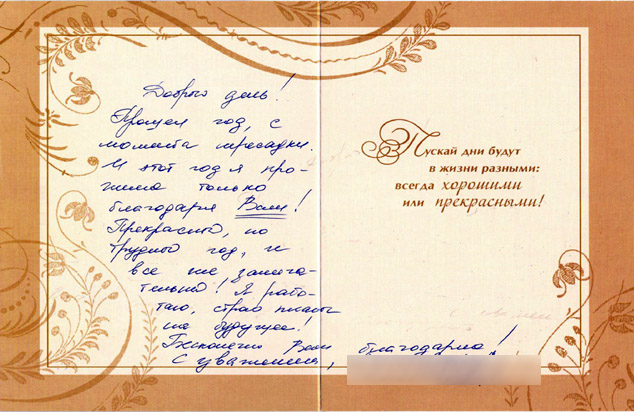 Добрый день!
Прошел год, с
момента пересадки.
И этот год я про-
жила только
благодаря Вам!
Прекрасный, но
трудный год, и
все же замеча-
тельный! Я рабо-
таю, строю планы
на будущее!
Бесконечно Вам благодарна!
С уважением,
Пускай дни будут
в жизни разными:
всегда хорошими
или прекрасными!